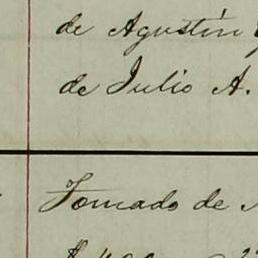 de Agustín
de Julio A.
Tomado de